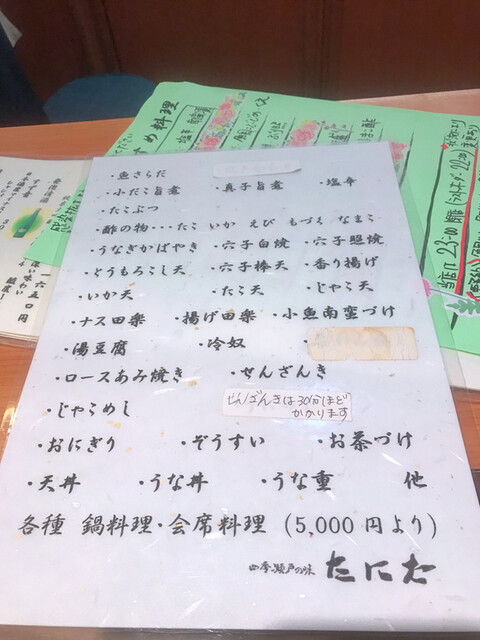 ・魚さらだ
・小だこ旨煮 ・真子旨煮 ・塩辛
・たこぶつ
・酢の物・・・たこ いか えび もづく なまこ
・うなぎかばやき ・穴子白焼 ・穴子照焼
・とうもろこし天 ・穴子棒天 ・香り揚げ
・いか天 ・たこ天 ・じゃこ天
・ナス田楽 ・揚げ田楽 ・小魚南蛮づけ
・湯豆腐 ・冷奴 ・
・ロースあみ焼き ・せんざんき
せんざんきは30分ほどかかります
・じゃこめし
・おにぎり ・ぞうすい ・お茶づけ
・天丼 ・うな丼 ・うな重 他
各種 鍋料理・会席料理 (5,000円より)
四季・瀬戸の味 たにた
すめ料理
当店は23:00閉店
ラストオーダー22:00
一六五〇円